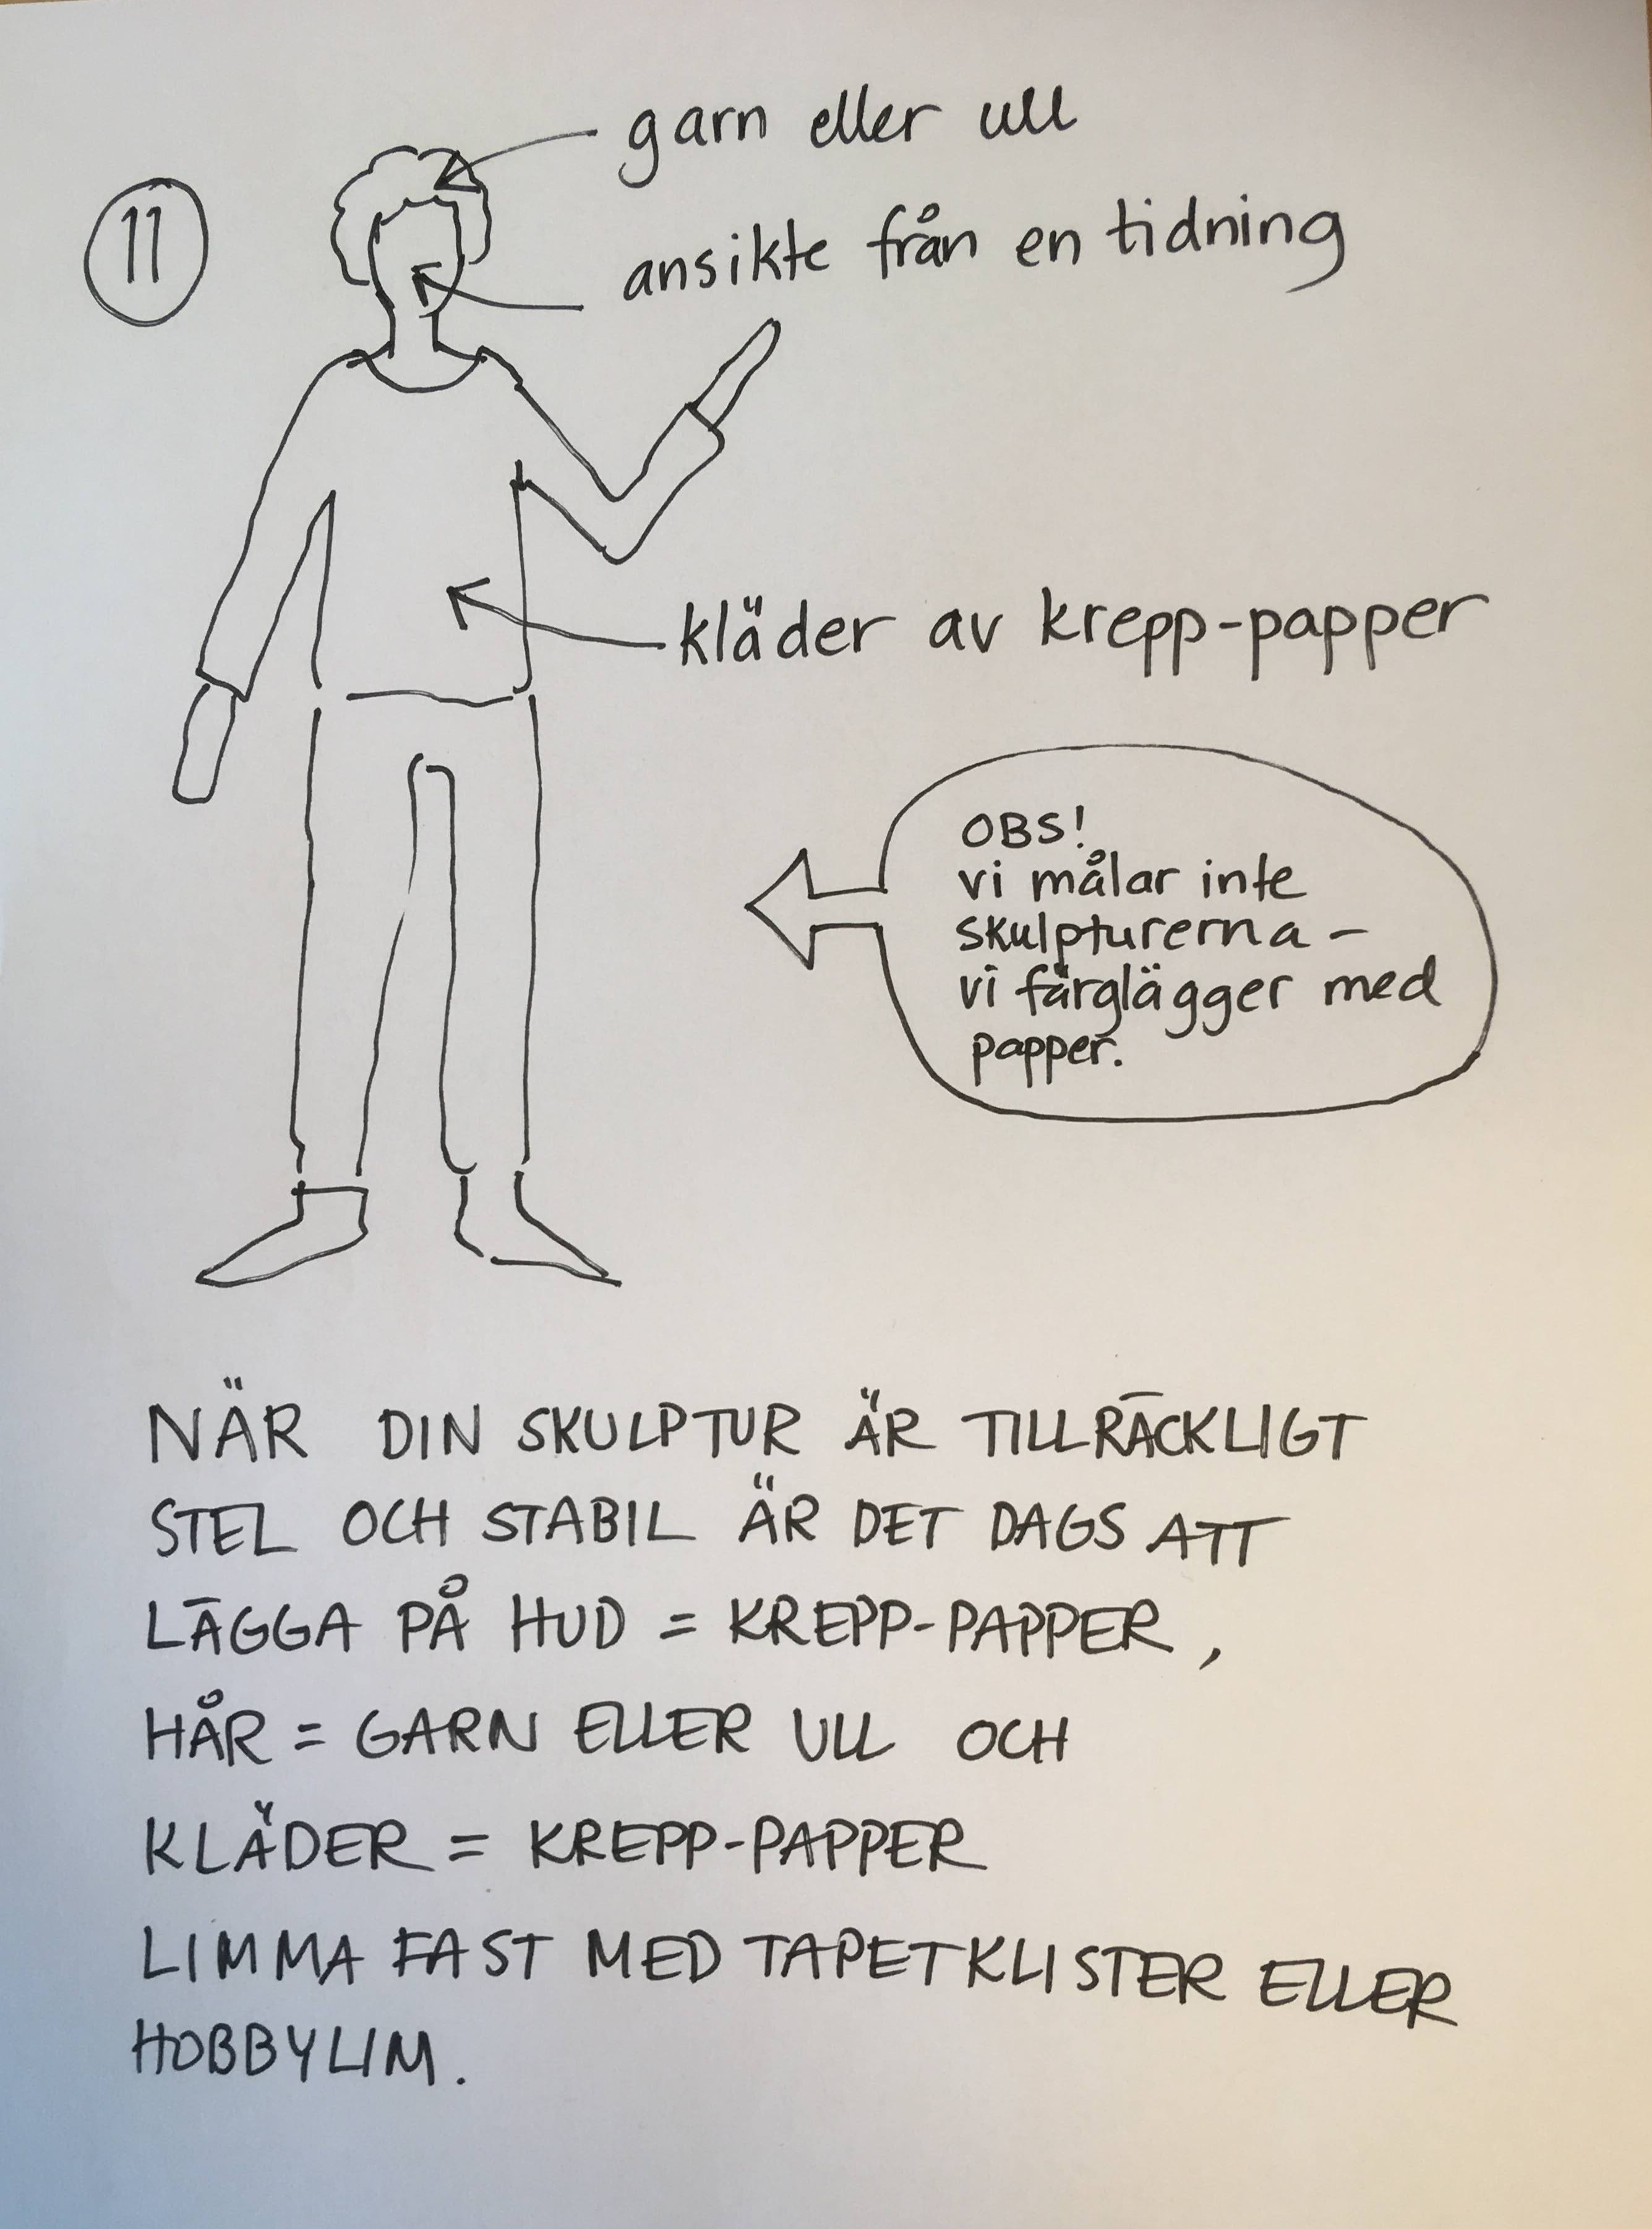 11
garn eller ull
ansikte från en tidning
kläder av krepp-papper
OBS!
vi målar inte
skulpturerna -
vi färglägger med
papper.
NÄR DIN SKULPTUR ÄR TILLRÄCKLIGT
STEL OCH STABIL ÄR DET DAGS ATT
LÄGGA PÅ HUD = KREPP-PAPPER,
HÅR = GARN ELLER ULL OCH
KLÄDER = KREPP-PAPPER
LIMMA FAST MED TAPETKLISTER ELLER
HOBBYLIM.